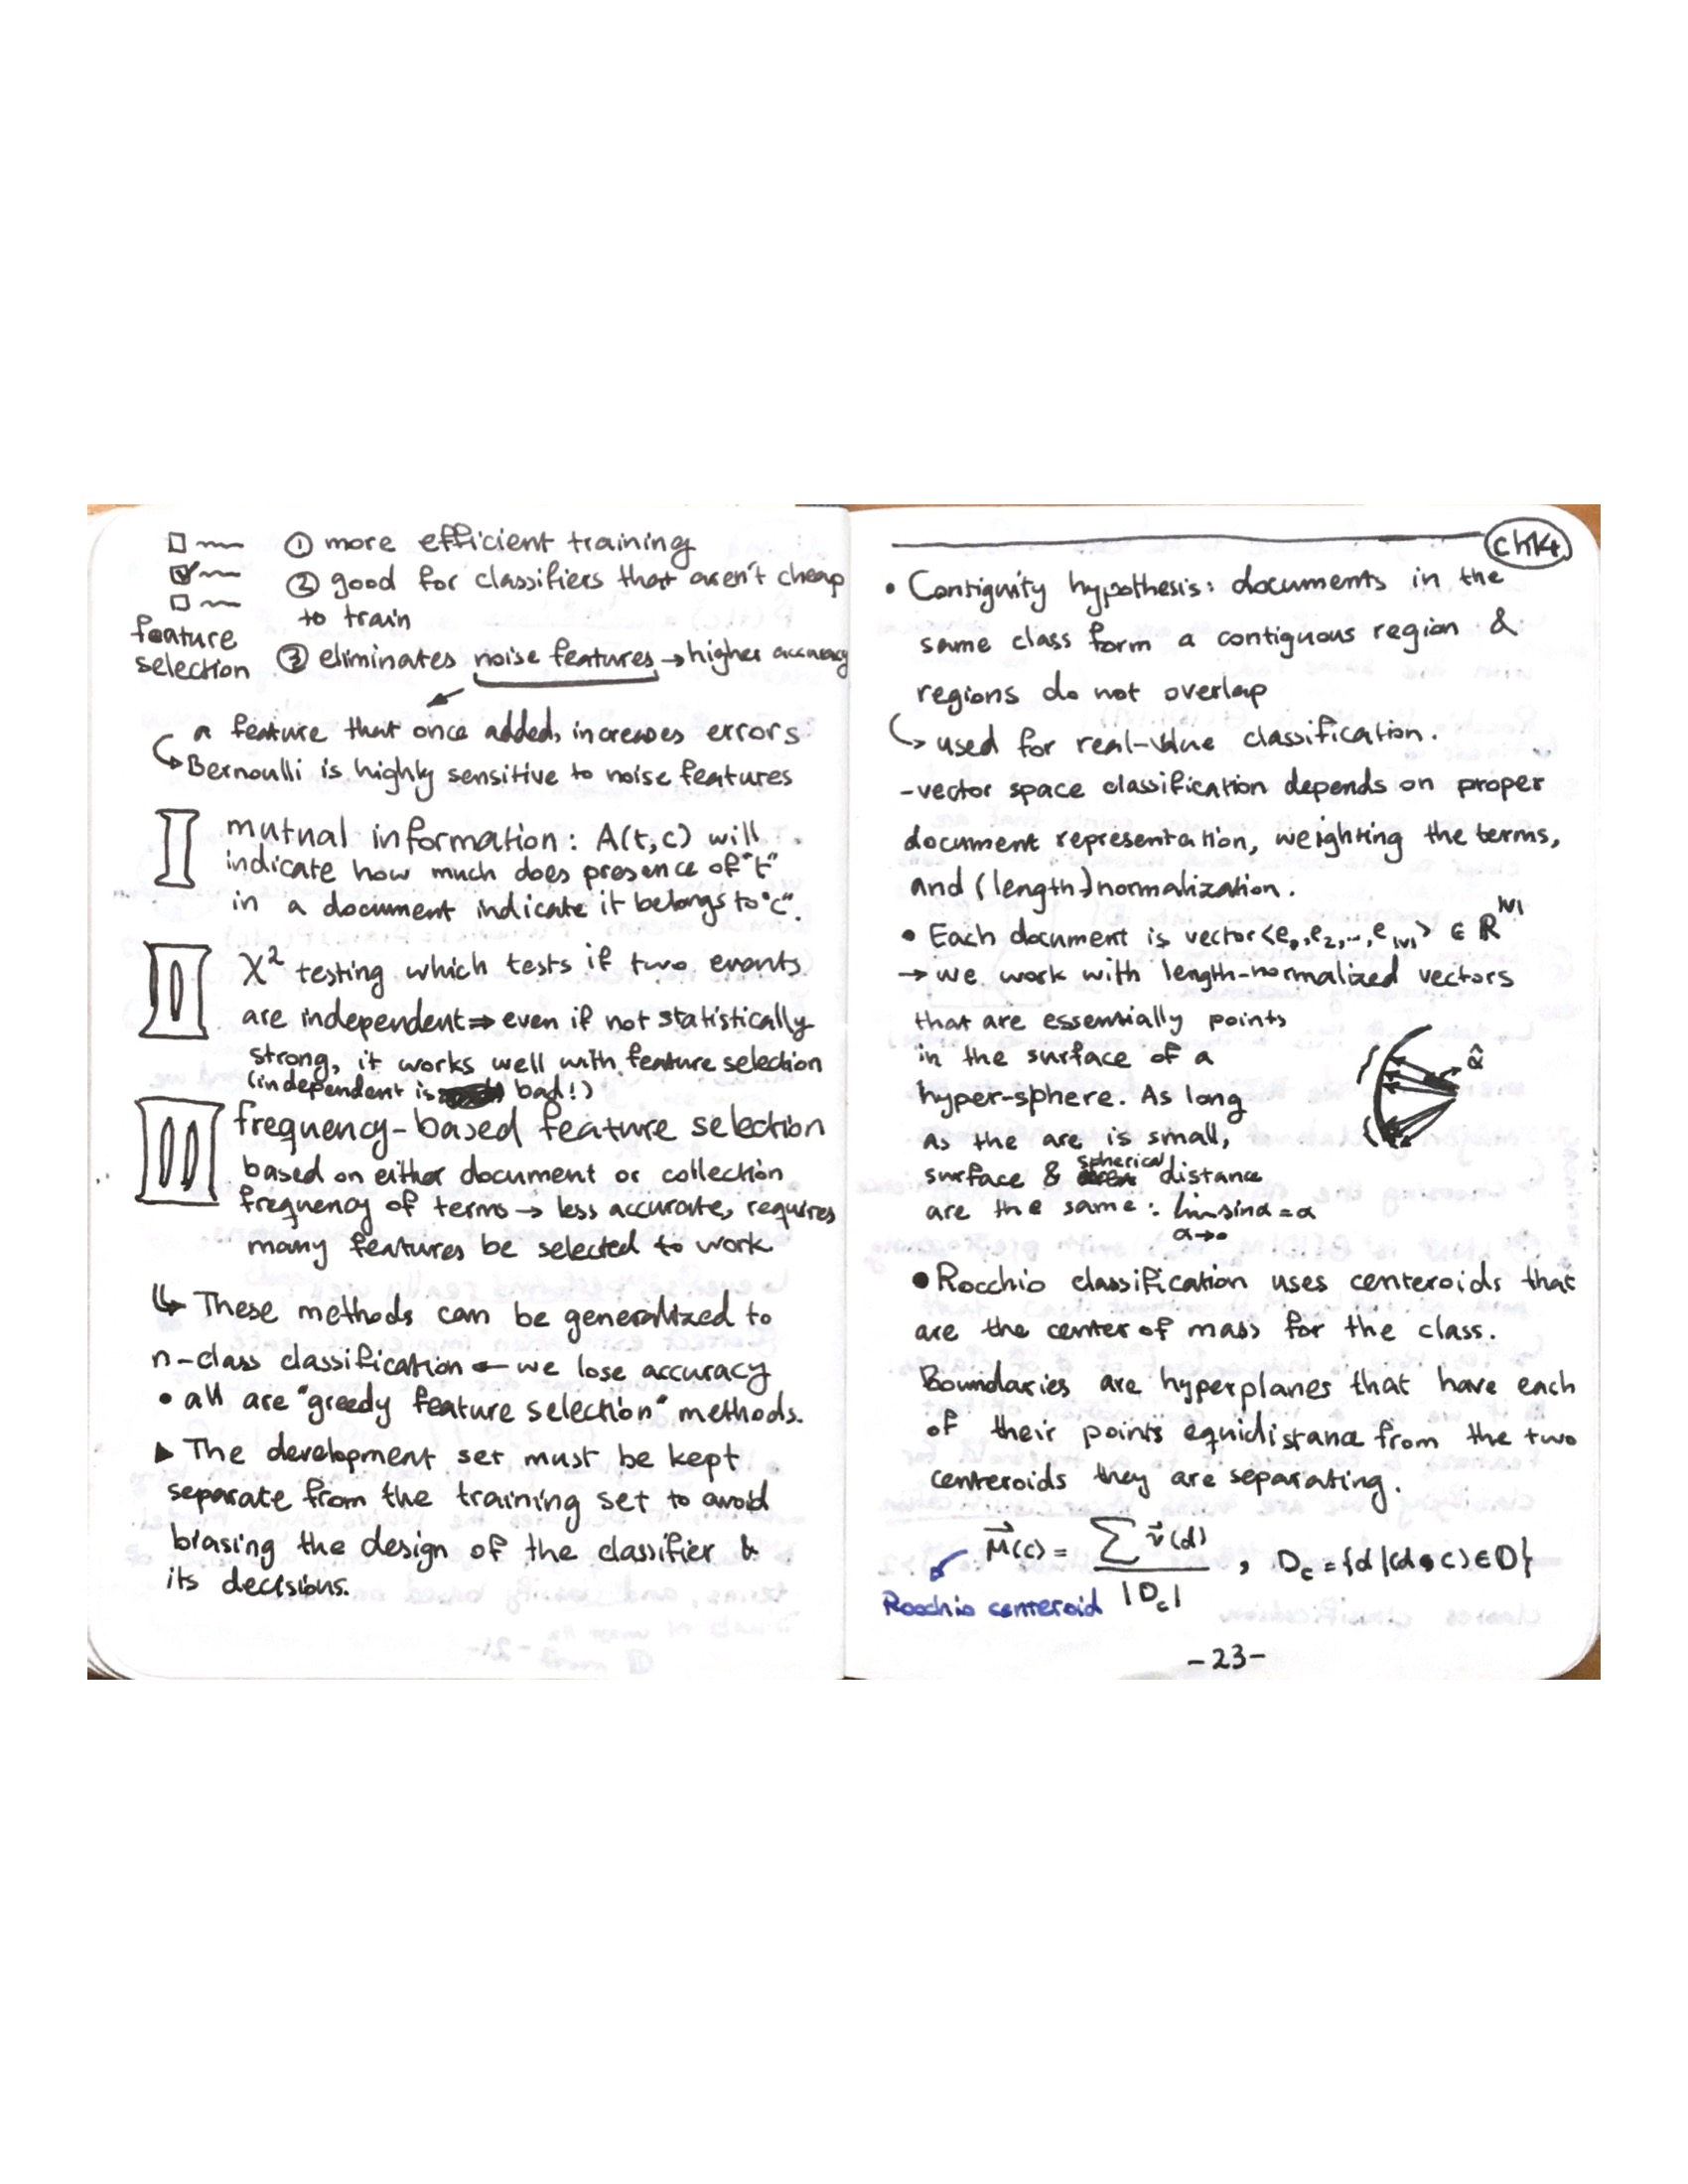 ① more efficient training
② good for classifiers that aren't cheap
to train
feature
selection
③ eliminates noise features → higher accuracy
a feature that once added, increases errors
↳ Bernoulli is highly sensitive to noise features
I mutual information: A(t,c) will
indicate how much does presence of "t"
in a document indicate it belongs to "c".
II χ² testing which tests if two events
are independent ⇒ even if not statistically
strong, it works well with feature selection
(independent is bad!)
III frequency-based feature selection
based on either document or collection
frequency of terms → less accurate, requires
many features be selected to work
↳ These methods can be generalized to
n-class classification ← we lose accuracy
• all are "greedy feature selection" methods.
▶ The development set must be kept
separate from the training set to avoid
biasing the design of the classifier &
its decisions.
ch14
• Contiguity hypothesis: documents in the
same class form a contiguous region &
regions do not overlap
↳ used for real-value classification.
-vector space classification depends on proper
document representation, weighting the terms,
and (length) normalization.
• Each document is vector <e₀,e₂,..,e|v|> ∈ ℝ^|V|
→ we work with length-normalized vectors
that are essentially points
in the surface of a
hyper-sphere. As long
as the are is small,
surface & spherical distance
are the same: lim sinα = α
α→0
α̂
• Rocchio classification uses centeroids that
are the center of mass for the class.
Boundaries are hyperplanes that have each
of their points equidistance from the two
centeroids they are separating.
μ⃗(c) = ∑ v⃗(d) / |D_c| , D_c = {d | (d, c) ∈ D}
Rocchio centeroid
-23-